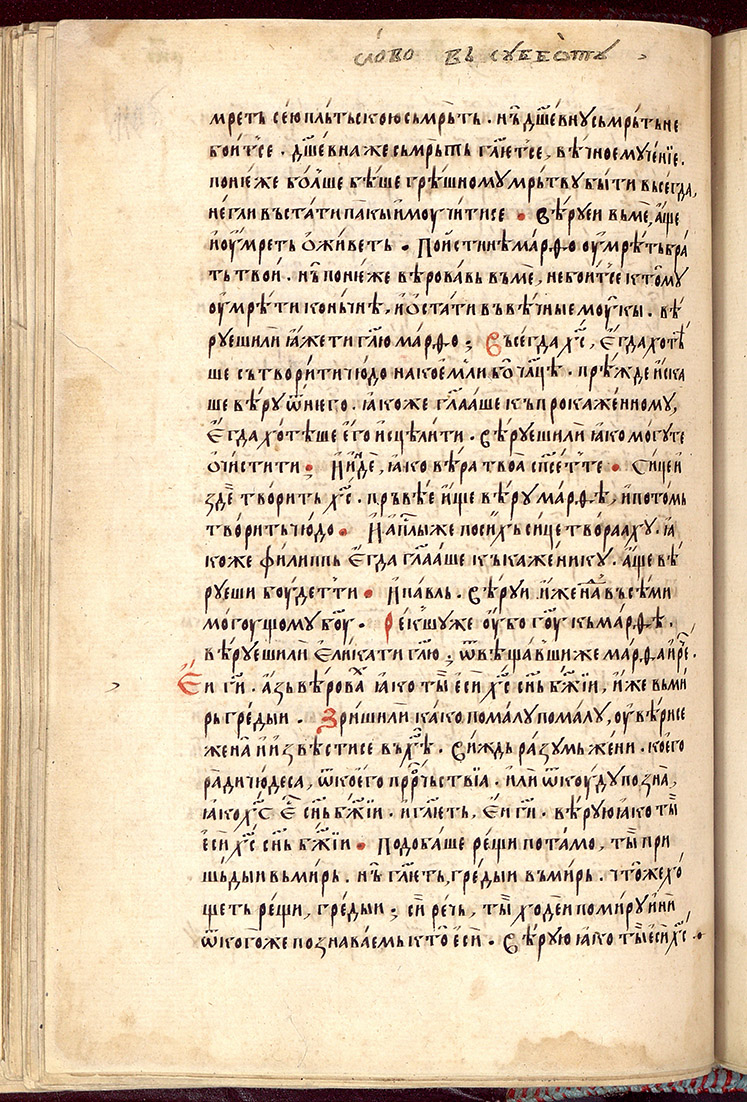 слово въ сꙋббѡтꙋ
мреть сею пльтьскою сьмрьть. нь дш҃евнꙋ сьмрьть не
боит се. дш҃евна же сьмрьть гл҃ет се, вѣчное мꙋченїе.
понѥже болше бѣше грѣшномꙋ мрьтвꙋ быти вьсегда,
негли въстати пакы и моучити се. Вѣрꙋеи вь ме, аще
и оумреть оживеть. Поистинѣ марѳо оумрѣть бра
ть твои. нь понѥже вѣровавь въ ме, не боит се к томꙋ
оумрѣти коньчнѣ, и остати въ вѣчные моукы. вѣ
рꙋеши ли ꙗже ти гл҃ю марѳо; Въсегда хс҃, егда хотѣ
ше сътворити чюдо на коем либо чл҃це. прѣжде иска
ше вѣрꙋ ѿ него. ꙗкоже гл҃ааше къ прокаженномꙋ,
егда хотѣше его исцѣлити. Вѣрꙋеши ли ꙗко могꙋ те
очистити. И иде, ꙗко вѣра твоа сп҃сет те. Сице и
зде творить хс҃. прьвѣе ище вѣрꙋ марѳѣ, и потомь
творить чюдо. И ап҃лы же по сихъ сице твораахꙋ. ꙗ
коже филиппь егда гл҃ааше къ каженикꙋ. аще вѣ
рꙋеши боудет ти. И павль. Вѣрꙋи и жена въсеми
могоущомꙋ б҃оу. Рекшꙋ же оубо г҃оу кь марѳѣ.
вѣрꙋеши ли елика ти гл҃ю; ѿвѣщавши же марѳа и ре҃.
Еи г҃и. азь вѣрова ꙗко ты еси хс҃ сн҃ь бж҃їи, иже вь ми
рь гредыи. Зриши ли како помалꙋ помалꙋ, оувѣри се
жена и извѣсти се въ х҃е. Виждь разꙋмь жени. коего
ради чюдеса, ѿ коего прр҃чьствїа. или ѿкоудꙋ позна,
ꙗко хс҃ е҃ сн҃ь бж҃їи. и гл҃еть, еи г҃и. вѣрꙋю ꙗко ты
еси хс҃ сн҃ь бж҃їи. Подобаше рещи потамо, ты при
шьдыи вь мирь. нь гл҃еть, гредыи въ мирь. что же хо
щеть рещи, гредыи; си речь, ты ходеи по мирꙋ и ни
ѿ когоже познаваемь кто еси. Вѣрꙋю ꙗко ты еси хс҃